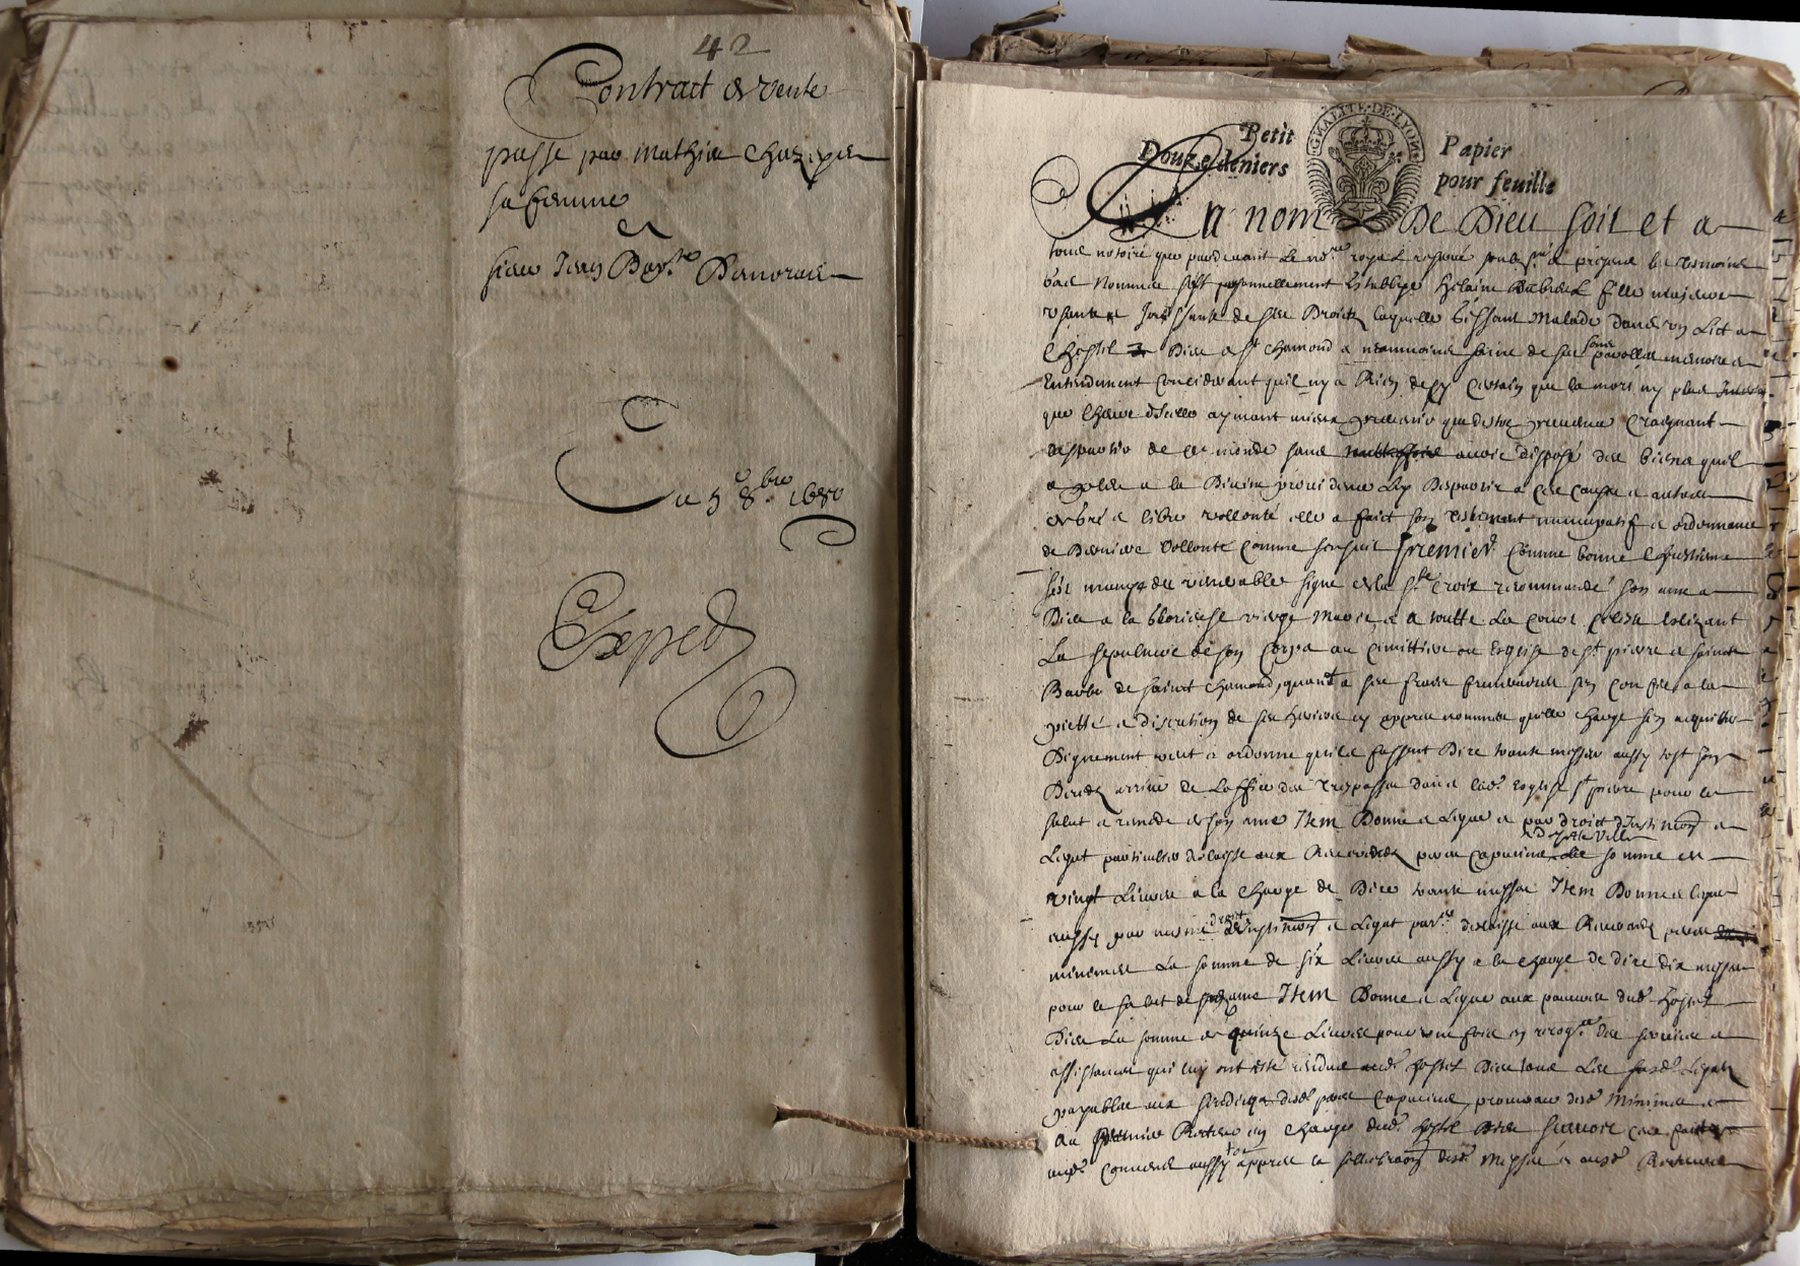 42
Contract de vente
passé par Mathieu
sa femme
a
sieur Jean Bap.te
Du 5e 8.bre 1680
Exped
GNALITE·DE·LYON
Petit Papier
Douze deniers pour feuille
Au nom De Dieu soit et a
tous notoire que pardevant le no.re royal reservé soubsig.né et presens les tesmoins
bas nommés s'est personnellement establye Hilaire fille majeure
usante et jouissante de ses Droictz laquelle Gissant Malade dans un Lict a
Lhostel Dieu de St chamond et neanmoings saine de ses sens parolle memoire et
Entendement Considerant quil ny a Rien de sy certain que la mort ny plus
que Lheure dicelle aymant mieux prevenir que destre prevenue Craignant
de partir de ce monde sans avoir disposé des biens quil
a pleu a la Divine providence Luy Despartir a ces causes
de gré et libre vollonté elle a faict son testement nuncupatif et ordonnance
de Derniere Vollonté Comme sensuit Premier Comme bonne Chrestienne
sest marquée du venerable signe de la S.te Croix recommandé son ame a
Dieu a la Glorieuse vierge Marie et a toutte La Cour Celeste eslizant
La sepulture de son Corps au Cimittiere ou Esglise de S.t pierre et saincte
Barbe de sainct chamond, quant a ses frais funeraires sen confie a la
pietté et discretion de ses heritiers cy appres nommés quelle charge sen acquitter
Dignement veut et ordonne quils fassent Dire trante messes aussy tost son
Decedz arrivé de Loffice des Trespasses dans lad. Esglise S.t pierre pour le
salut et remede de son ame Item Donne et Legue et par droict d'Instition et
de la Ville
Legat particulier delaisse aux Reverendz peres Capucins la somme de
vingt Livres a la charge de Dire trante messes Item Donne et legue
aussy par mesme droict d'Instition et Legat par.er delaisse aux Reverendz peres
minimes La somme de six Livres aussy a la charge de dire dix messes
pour le salut de son ame Item Donne et Legue aux pauvres dud. hostel
Dieu La somme de quinze Livres pour une fois en recog.ce des services et
assistances qui luy ont esté rendus aud. hostel Dieu tous Les susd. Legatz
payables aux sindicqs desd. peres Capucins, procureur desd. Minimes et
au premier Recteur en charge dud. hostel Dieu
aud. Couvens aussy tost appres la sellebration desd. Messes et ausd. Recteurs